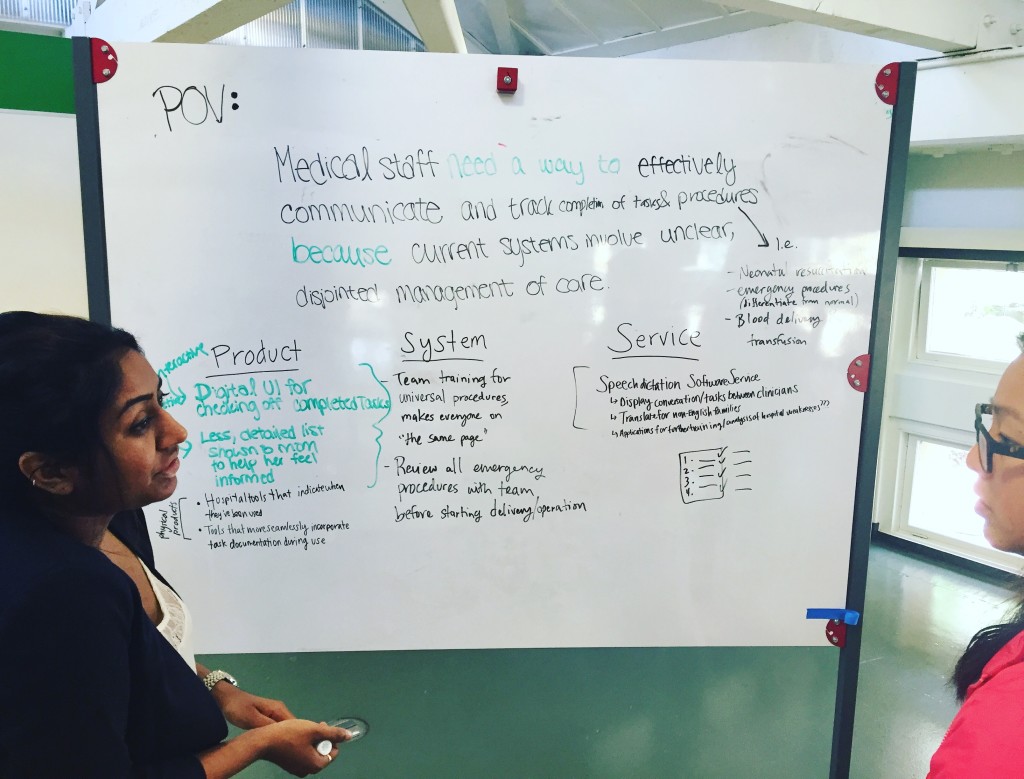 POV:
Medical staff need a way to effectively
communicate and track completion of tasks & procedures
because current systems involve unclear,
disjointed management of care.
I.e.
- Neonatal resuscitation
- emergency procedures
(differentiate from normal)
- Blood delivery
transfusion
Product
Digital UI for
checking off completed Tasks
Less, detailed list
shown to mom
to help her feel
informed
physical products
• Hospital tools that indicate when
they've been used
• Tools that more seamlessly incorporate
task documentation during use
System
- Team training for
universal procedures,
makes everyone on
"the same page"
- Review all emergency
procedures with team
before starting delivery/operation
Service
Speech dictation Software Service
↳ Display conversation/tasks between clinicians
↳ Translate for non-English families
↳ Applications for further training/analysis of hospital weaknesses???
1.
2.
3.
4.